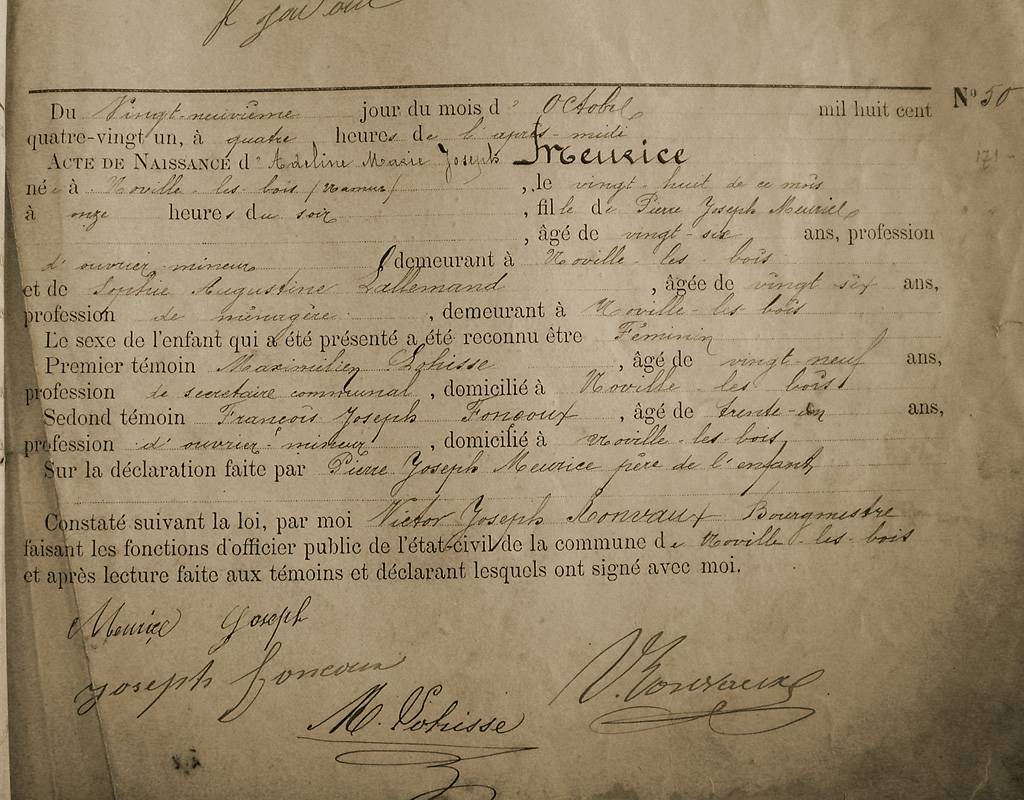 Nº 50
Du Vingt-neuvième jour du mois d'Octobre mil huit cent
quatre-vingt un, à quatre heures de l'après-midi
ACTE DE NAISSANCE d'Adeline Marie Joseph Meurice
née à Noville-les-bois (Namur), le vingt-huit de ce mois
à onze heures du soir, fille de Pierre Joseph Meurice
, âgé de vingt-six ans, profession
d'ouvrier mineur demeurant à Noville-les-bois
et de Sophie Augustine Lallemand, âgée de vingt six ans,
profession de ménagère, demeurant à Noville-les-bois
Le sexe de l'enfant qui a été présenté a été reconnu être Féminin
Premier témoin Maximilien, âgé de vingt-neuf ans,
profession de secretaire communal, domicilié à Noville-les-bois
Sedond témoin François Joseph Foncoux, âgé de trente-un ans,
profession d'ouvrier-mineur, domicilié à Noville-les-bois,
Sur la déclaration faite par Pierre Joseph Meurice père de l'enfant,
Constaté suivant la loi, par moi Victor Joseph Ronvaux Bourgmestre
faisant les fonctions d'officier public de l'état-civil de la commune de Noville-les-bois
et après lecture faite aux témoins et déclarant lesquels ont signé avec moi.
Meurice Joseph
Joseph Foncoux
V. Ronvaux
M.